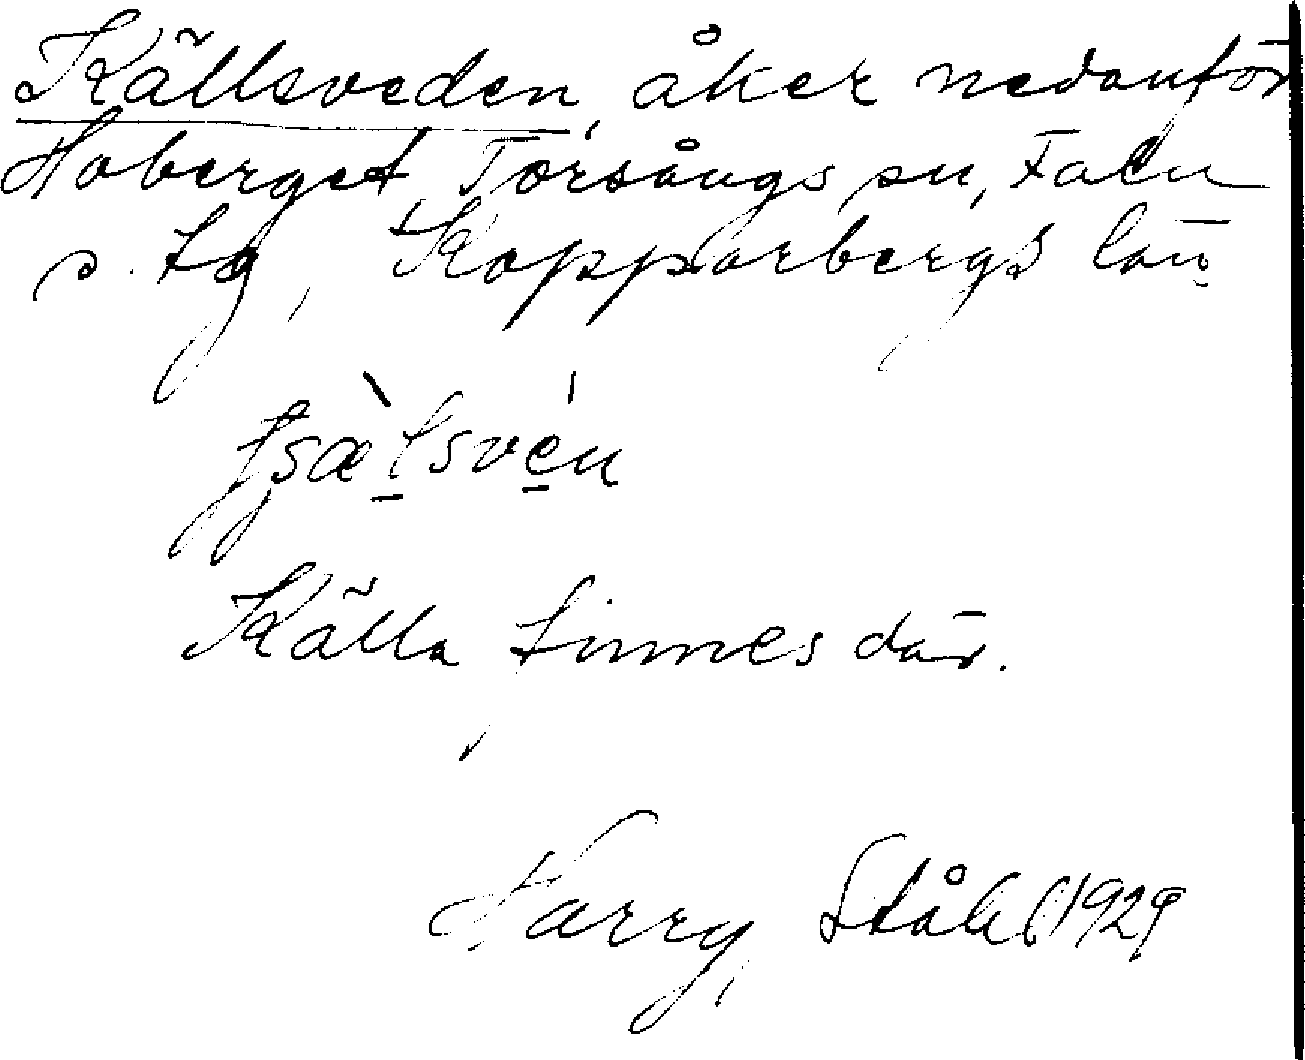 Källsveden, åker nedanför
Hoberget, Torsångs sn, Falu
s. tg, Kopparbergs län.
Källa finnes där.
Harry Ståhl 1929